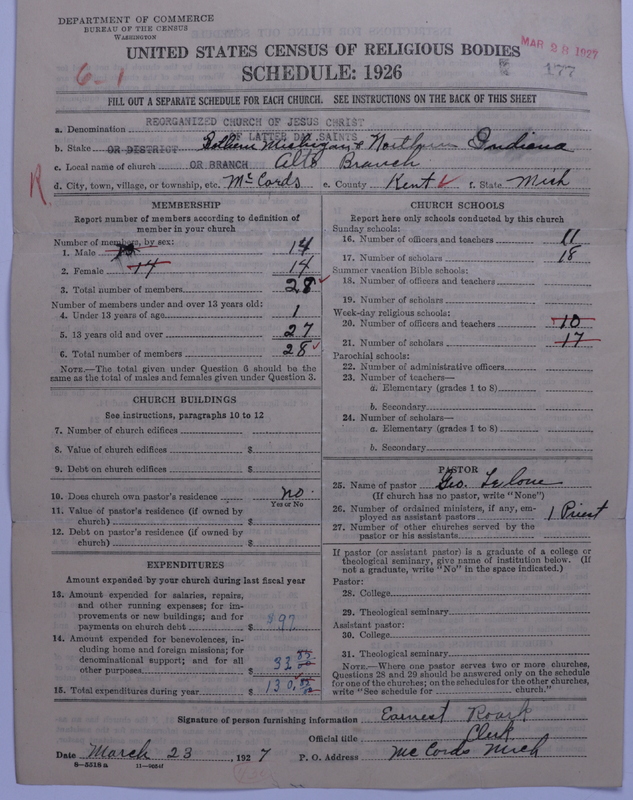 DEPARTMENT OF COMMERCE
BUREAU OF THE CENSUS
WASHINGTON
UNITED STATES CENSUS OF RELIGIOUS BODIES
MAR 28 1927
6-1
SCHEDULE: 1926
177
FILL OUT A SEPARATE SCHEDULE FOR EACH CHURCH. SEE INSTRUCTIONS ON THE BACK OF THIS SHEET
a. Denomination REORGANIZED CHURCH OF JESUS CHRIST
OF LATTER DAY SAINTS
b. State OR DISTRICT Sothern Michigan & Northern Indiana
c. Local name of church OR BRANCH Alto Branch
R.
d. City, town, village, or township, etc. McCords e. County Kent f. State Mich
MEMBERSHIP
Report number of members according to definition of member in your church
Number of members, by sex:
1. Male 14
2. Female 14 14
3. Total number of members 28
Number of members under and over 13 years old:
4. Under 13 years of age 1
5. 13 years old and over 27
6. Total number of members 28
NOTE.—The total given under Question 6 should be the same as the total of males and females given under Question 3.
CHURCH BUILDINGS
See instructions, paragraphs 10 to 12
7. Number of church edifices
8. Value of church edifices $
9. Debt on church edifices $
10. Does church own pastor's residence no.
Yes or No
11. Value of pastor's residence (if owned by church) $
12. Debt on pastor's residence (if owned by church) $
EXPENDITURES
Amount expended by your church during last fiscal year
13. Amount expended for salaries, repairs, and other running expenses; for improvements or new buildings; and for payments on church debt $ 97
14. Amount expended for benevolences, including home and foreign missions; for denominational support; and for all other purposes $ 33
15. Total expenditures during year $ 130
CHURCH SCHOOLS
Report here only schools conducted by this church
Sunday schools:
16. Number of officers and teachers 11
17. Number of scholars 18
Summer vacation Bible schools:
18. Number of officers and teachers
19. Number of scholars
Week-day religious schools:
20. Number of officers and teachers 10
21. Number of scholars 17
Parochial schools:
22. Number of administrative officers
23. Number of teachers—
a. Elementary (grades 1 to 8)
b. Secondary
24. Number of scholars—
a. Elementary (grades 1 to 8)
b. Secondary
PASTOR
25. Name of pastor Geo.
(If church has no pastor, write "None")
26. Number of ordained ministers, if any, employed as assistant pastors 1 Priest
27. Number of other churches served by the pastor or his assistants
If pastor (or assistant pastor) is a graduate of a college or theological seminary, give name of institution below. (If not a graduate, write "No" in the space indicated.)
Pastor:
28. College
29. Theological seminary
Assistant pastor:
30. College
31. Theological seminary
NOTE.—Where one pastor serves two or more churches, Questions 28 and 29 should be answered only on the schedule for one of the churches; on the schedules for the other churches, write "See schedule for church."
Signature of person furnishing information Earnest Roark
Official title Clerk
Date March 23, 1927 P. O. Address McCords Mich
8-5518a